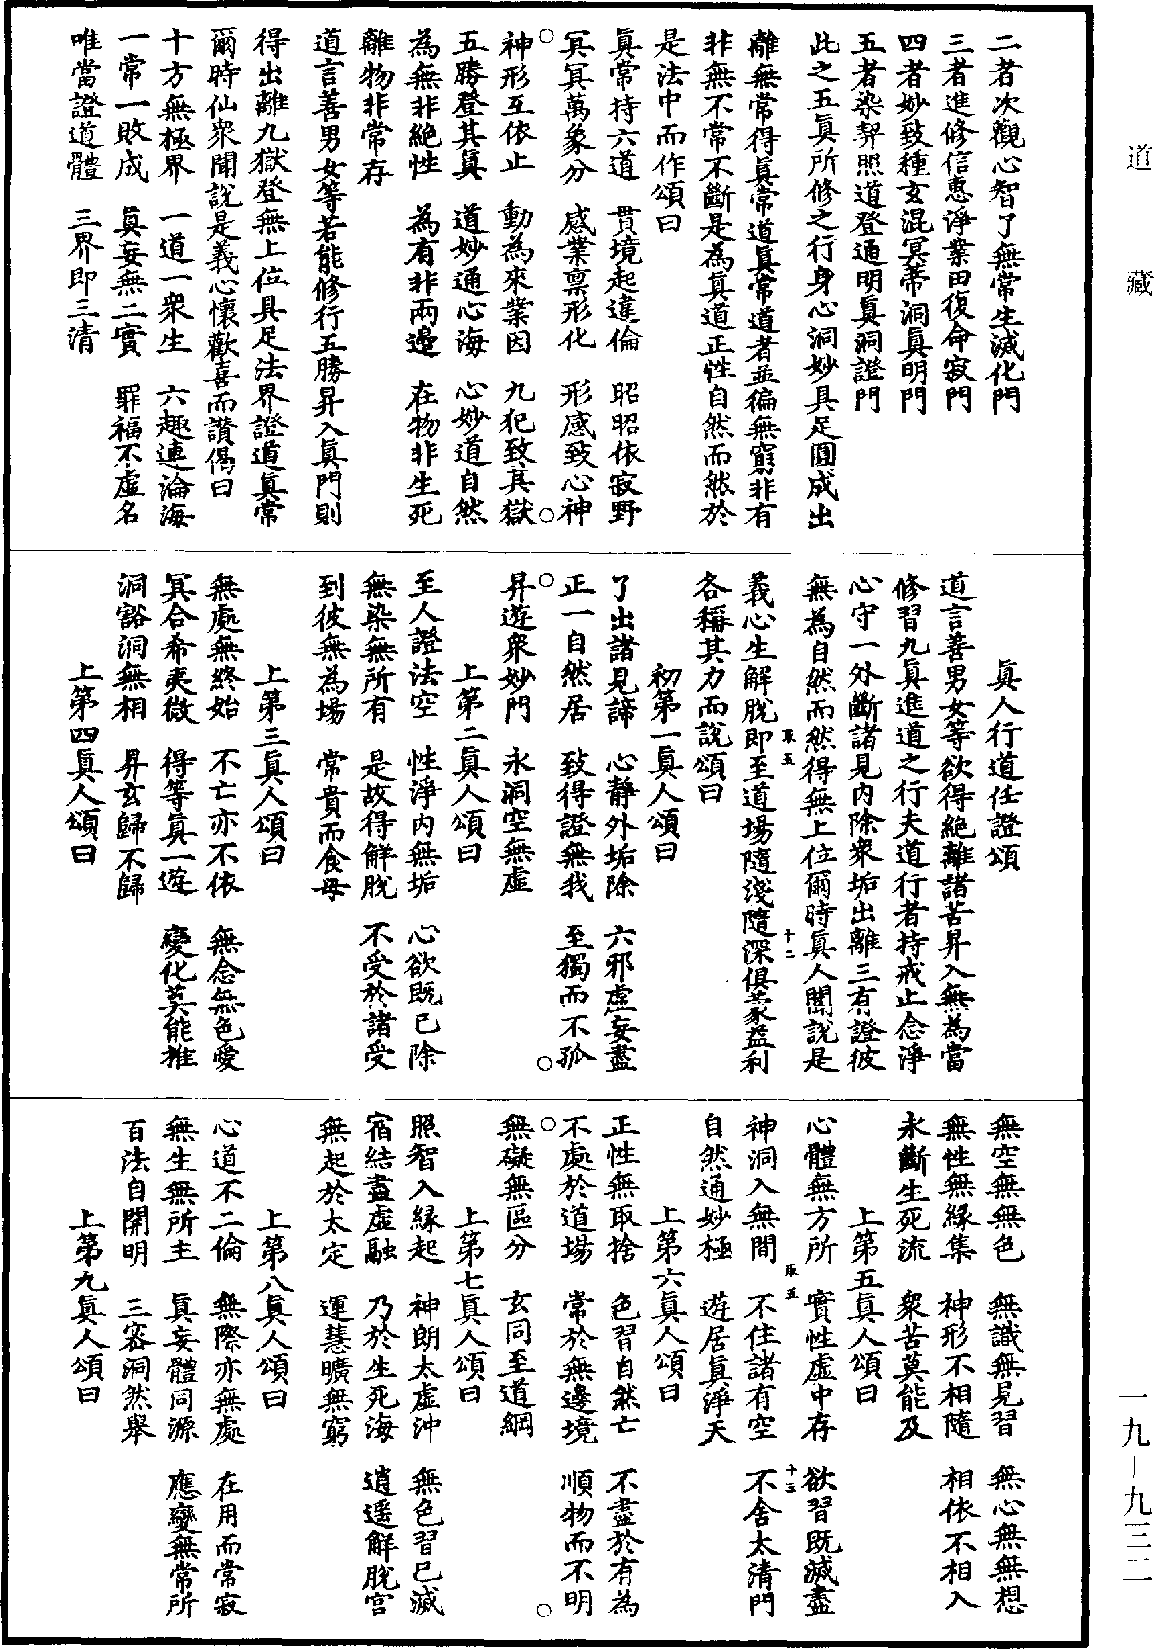 道藏
二者次觀心智了無常生滅化門
三者進修信惠淨業田復命寂門
四者妙致種玄混冥蒂洞真明門
五者染契照道登通明真洞證門
此之五真所修之行身心洞妙具足圓成出
離無常得真常道真常道者並徧無窮非有
非無不常不斷是為真道正性自然而然於
是法中而作頌曰
真常持六道　貫境起違倫　昭昭依寂野
冥冥萬象分　感業禀形化　形感致心神
神形互依止　動為來業因　九犯致其獄
五勝登其真　道妙通心海　心妙道自然
為無非絕性　為有非兩邊　在物非生死
離物非常存
道言善男女等若能修行五勝昇入真門則
得出離九獄登無上位具足法界證道真常
爾時仙衆聞說是義心懷歡喜而讚偈曰
十方無極界　一道一衆生　六趣連淪海
一常一敗成　真妄無二實　罪福不虛名
唯當證道體　三界即三清
真人行道任證頌
道言善男女等欲得絕離諸苦昇入無為當
修習九真進道之行夫道行者持戒止念淨
心守一外斷諸見內除衆垢出離三有證彼
無為自然而然得無上位爾時真人聞說是
義心生解脫即至道場隨淺隨深俱蒙益利
各稱其力而說頌曰
初第一真人頌曰
了出諸見諦　心靜外垢除　六邪虛妄盡
正一自然居　致得證無我　至獨而不孤
昇遊衆妙門　永洞空無虛
上第二真人頌曰
至人證法空　性淨內無垢　心欲既已除
無染無所有　是故得解脫　不受於諸受
到彼無為場　常貴而食母
上第三真人頌曰
無處無終始　不亡亦不依　無念無色愛
冥合希夷微　得等真一遊　變化莫能推
洞豁洞無相　昇玄歸不歸
上第四真人頌曰
無空無無色　無識無見習　無心無無想
無性無緣集　神形不相隨　相依不相入
永斷生死流　衆苦莫能及
上第五真人頌曰
心體無方所　實性虛中存　欲習既滅盡
神洞入無間　不住諸有空　不舍太清門
自然通妙極　遊居真淨天
上第六真人頌曰
正性無取捨　色習自然亡　不盡於有為
不處於道場　常於無邊境　順物而不明
無礙無區分　玄同至道綱
上第七真人頌曰
照智入緣起　神朗太虛沖　無色習已滅
宿結盡虛融　乃於生死海　逍遥解脫宫
無起於太定　運慧曠無窮
上第八真人頌曰
心道不二倫　無際亦無處　在用而常寂
無生無所主　真妄體同源　應變無常所
百法自開明　三容洞然舉
上第九真人頌曰
一九—九三二